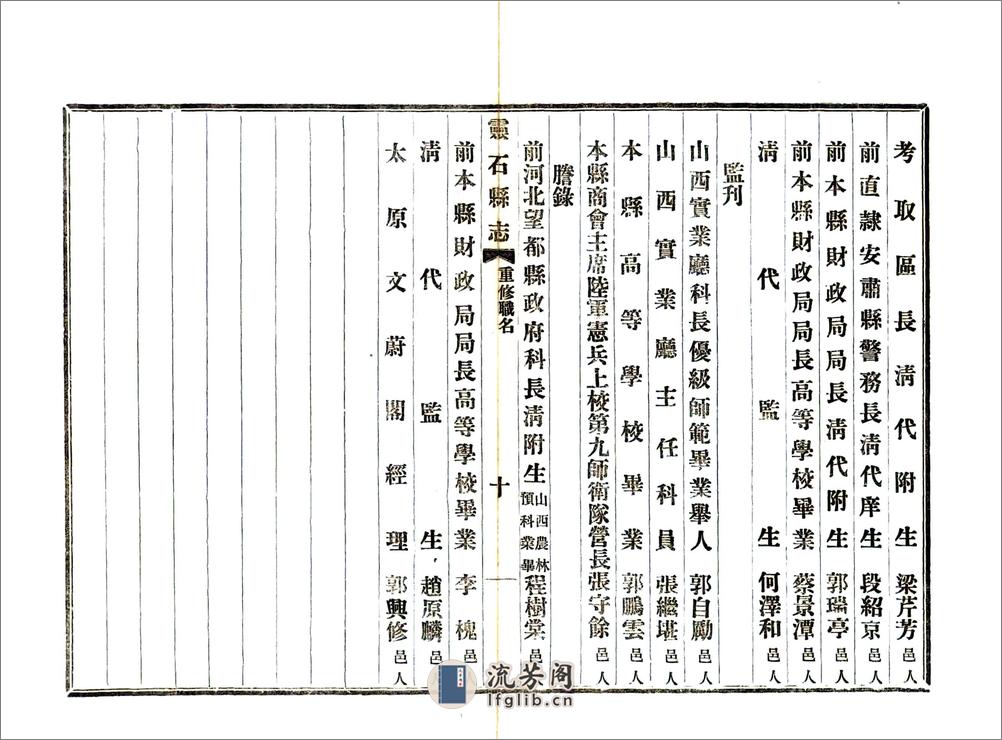 考取區長清代附生梁芹芳邑人
前直隷安肅縣警務長清代庠生段紹京邑人
前本縣財政局局長清代附生郭瑞亭邑人
前本縣財政局局長高等學校畢業蔡景潭邑人
清代監生何澤和邑人
監刊
山西實業廳科長優級師範畢業舉人郭自勵邑人
山西實業廳主任科員張繼堪邑人
本縣高等學校畢業郭鵬雲邑人
本縣商會主席陸軍憲兵上校第九師衛隊營長張守餘邑人
謄錄
前河北望都縣政府科長清附生山西農林預科業畢程樹棠邑人
靈石縣志 重修職名 十
前本縣財政局局長高等學校畢業李槐邑人
清代監生趙原麟邑人
太原文蔚閣經理郭興修邑人
流芳阁
lfglib.cn